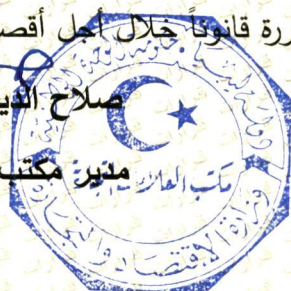 ررة قانوناً خلال أجل أقصـ
صلاح الديـ
مدير مكتب
دولة ليبيا
مكتب العلا
وزارة الاقتصاد والتجارة